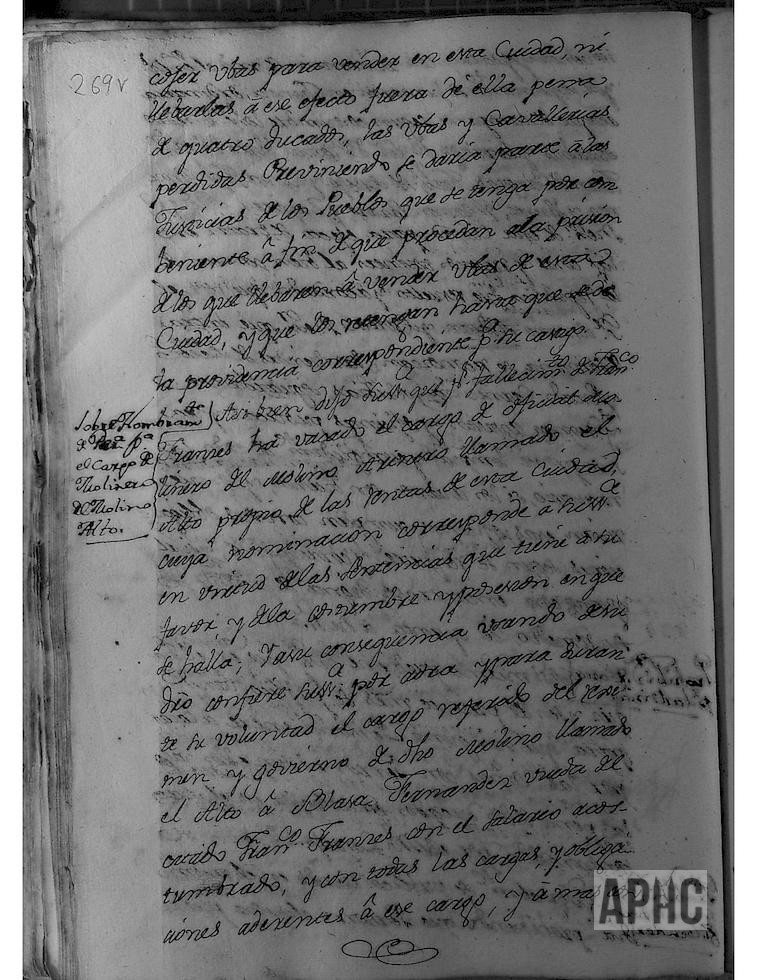 269v
cojer Ubas para vender en esta Ciudad, ni
llebarlas â ese efecto fuera de ella pena
de quatro ducados, las Ubas y Cavallerias
perdidas Previniendo se daria parte â las
Justicias de los Pueblos que se tenga por con
beniente â fin de que procedan ala prision
de los que llebaren â vender Ubas de esta
Ciudad, y que los retengan hasta que se de
la providencia correspondiente pa. su castigo.
Sobre Nombramto.
de
pa.
el Cargo de
Molinero
del Molino
Alto.
Asi bien dijo que pr. fallecimto. de Franco.
Franzes ha vacado el cargo de oficial
linero del Molino Arinero llamado el
Alto propio de las rentas de esta Ciudad,
cuya nominacion corresponde â
en virtud de las Sentencias que tiene a su
favor, y de la costumbre y posesion en que
se halla; Y asu consequencia usando de su
dro confiere por aora y para duran
te su voluntad el cargo referido del
men y govierno de dho Molino llamado
el Alto â Blasa Fernandez viuda del
citado Franco. Franzes con el salario acos
tumbrado, y con todas las cargas, y obliga
ciones aderentes â ese cargo, y â mas
APHC